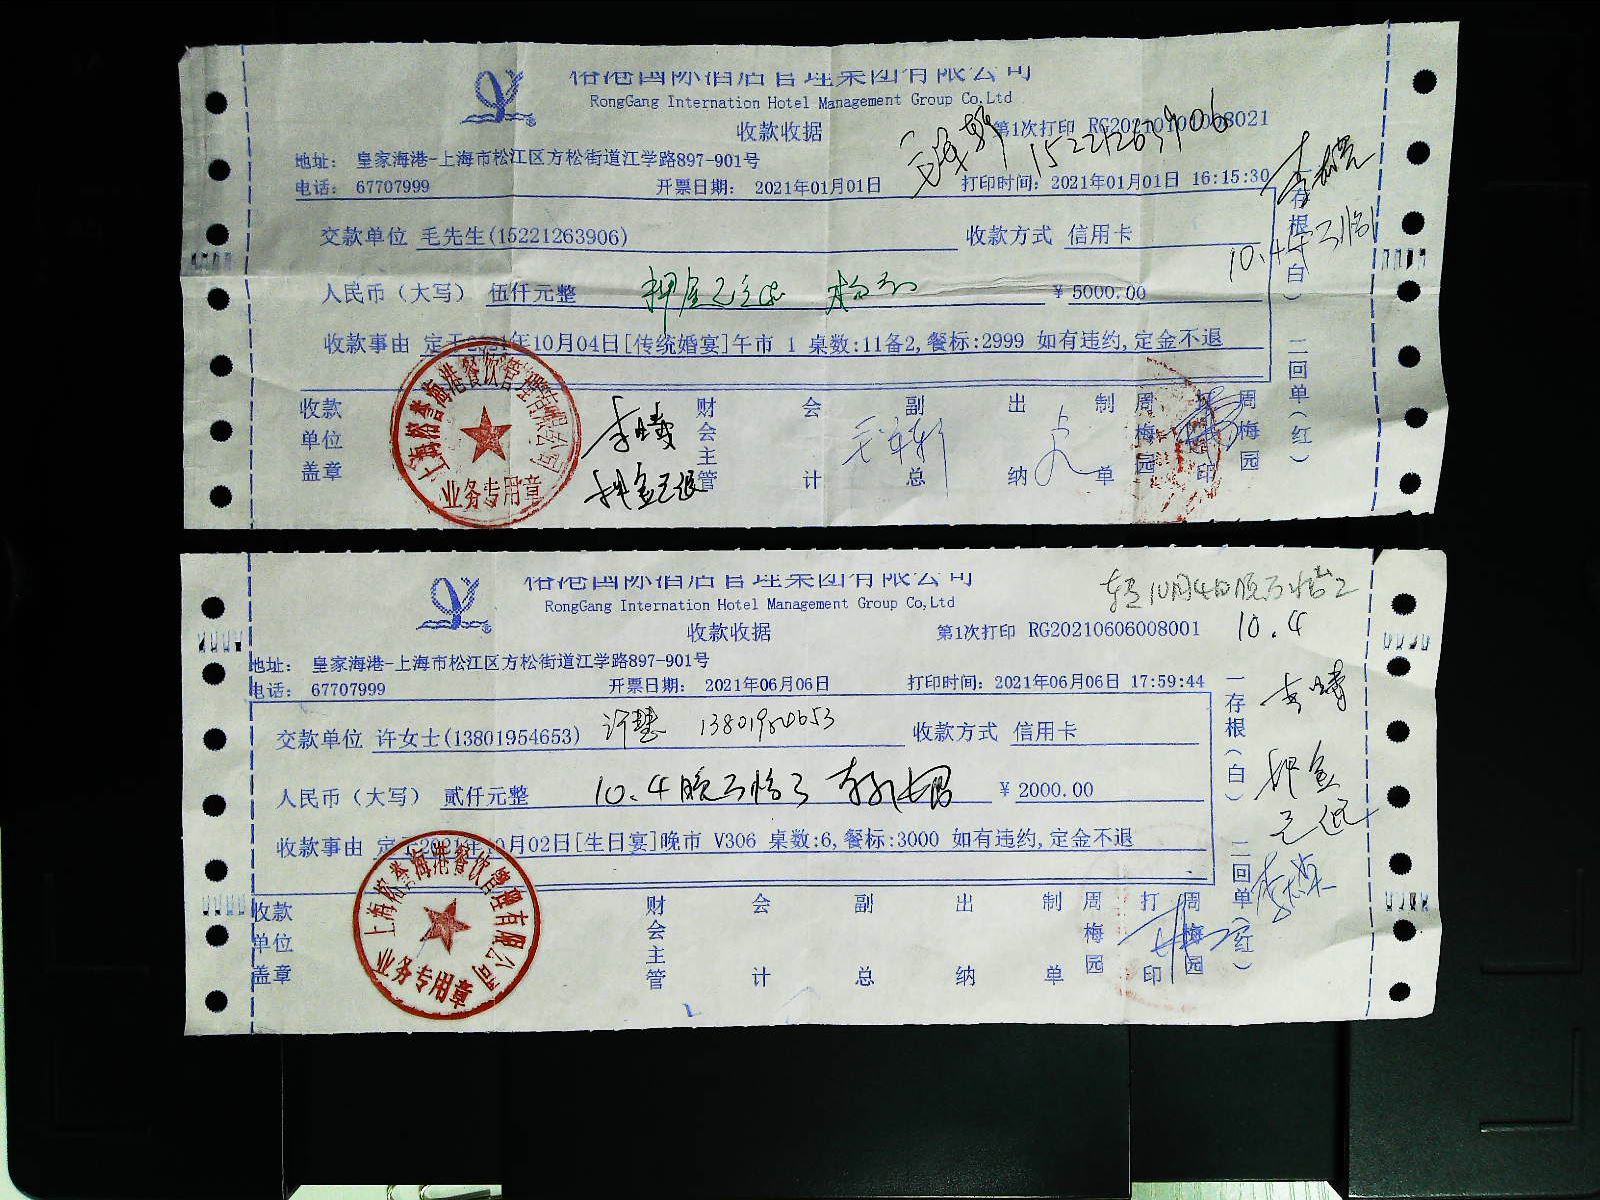 国际酒店管理集团有限公司
RongGang Internation Hotel Management Group Co,Ltd
收款收据
第1次打印
地址： 皇家海港-上海市松江区方松街道江学路897-901号
电话： 67707999
开票日期： 2021年01月01日
打印时间：2021年01月01日 16:15:30
交款单位 毛先生(15221263906)
收款方式 信用卡
人民币（大写） 伍仟元整
¥ 5000.00
收款事由 定于2021年10月04日[传统婚宴]午市 1 桌数:11备2,餐标:2999 如有违约,定金不退
一存根（白） 二回单（红）
收款单位盖章
上海榕誉海港餐饮管理有限公司
业务专用章
押金已退
财会主管
会计
副总
出纳
制单
周梅园
打印
周梅园
国际酒店管理集团有限公司
RongGang Internation Hotel Management Group Co,Ltd
收款收据
第1次打印 RG20210606008001
10.4
地址： 皇家海港-上海市松江区方松街道江学路897-901号
电话： 67707999
开票日期： 2021年06月06日
打印时间：2021年06月06日 17:59:44
交款单位 许女士(13801954653)
收款方式 信用卡
人民币（大写） 贰仟元整
¥ 2000.00
收款事由 定于2021年10月02日[生日宴]晚市 V306 桌数:6,餐标:3000 如有违约,定金不退
一存根（白） 二回单（红）
押金已退
收款单位盖章
上海榕誉海港餐饮管理有限公司
业务专用章
财会主管
会计
副总
出纳
制单
周梅园
打印
周梅园